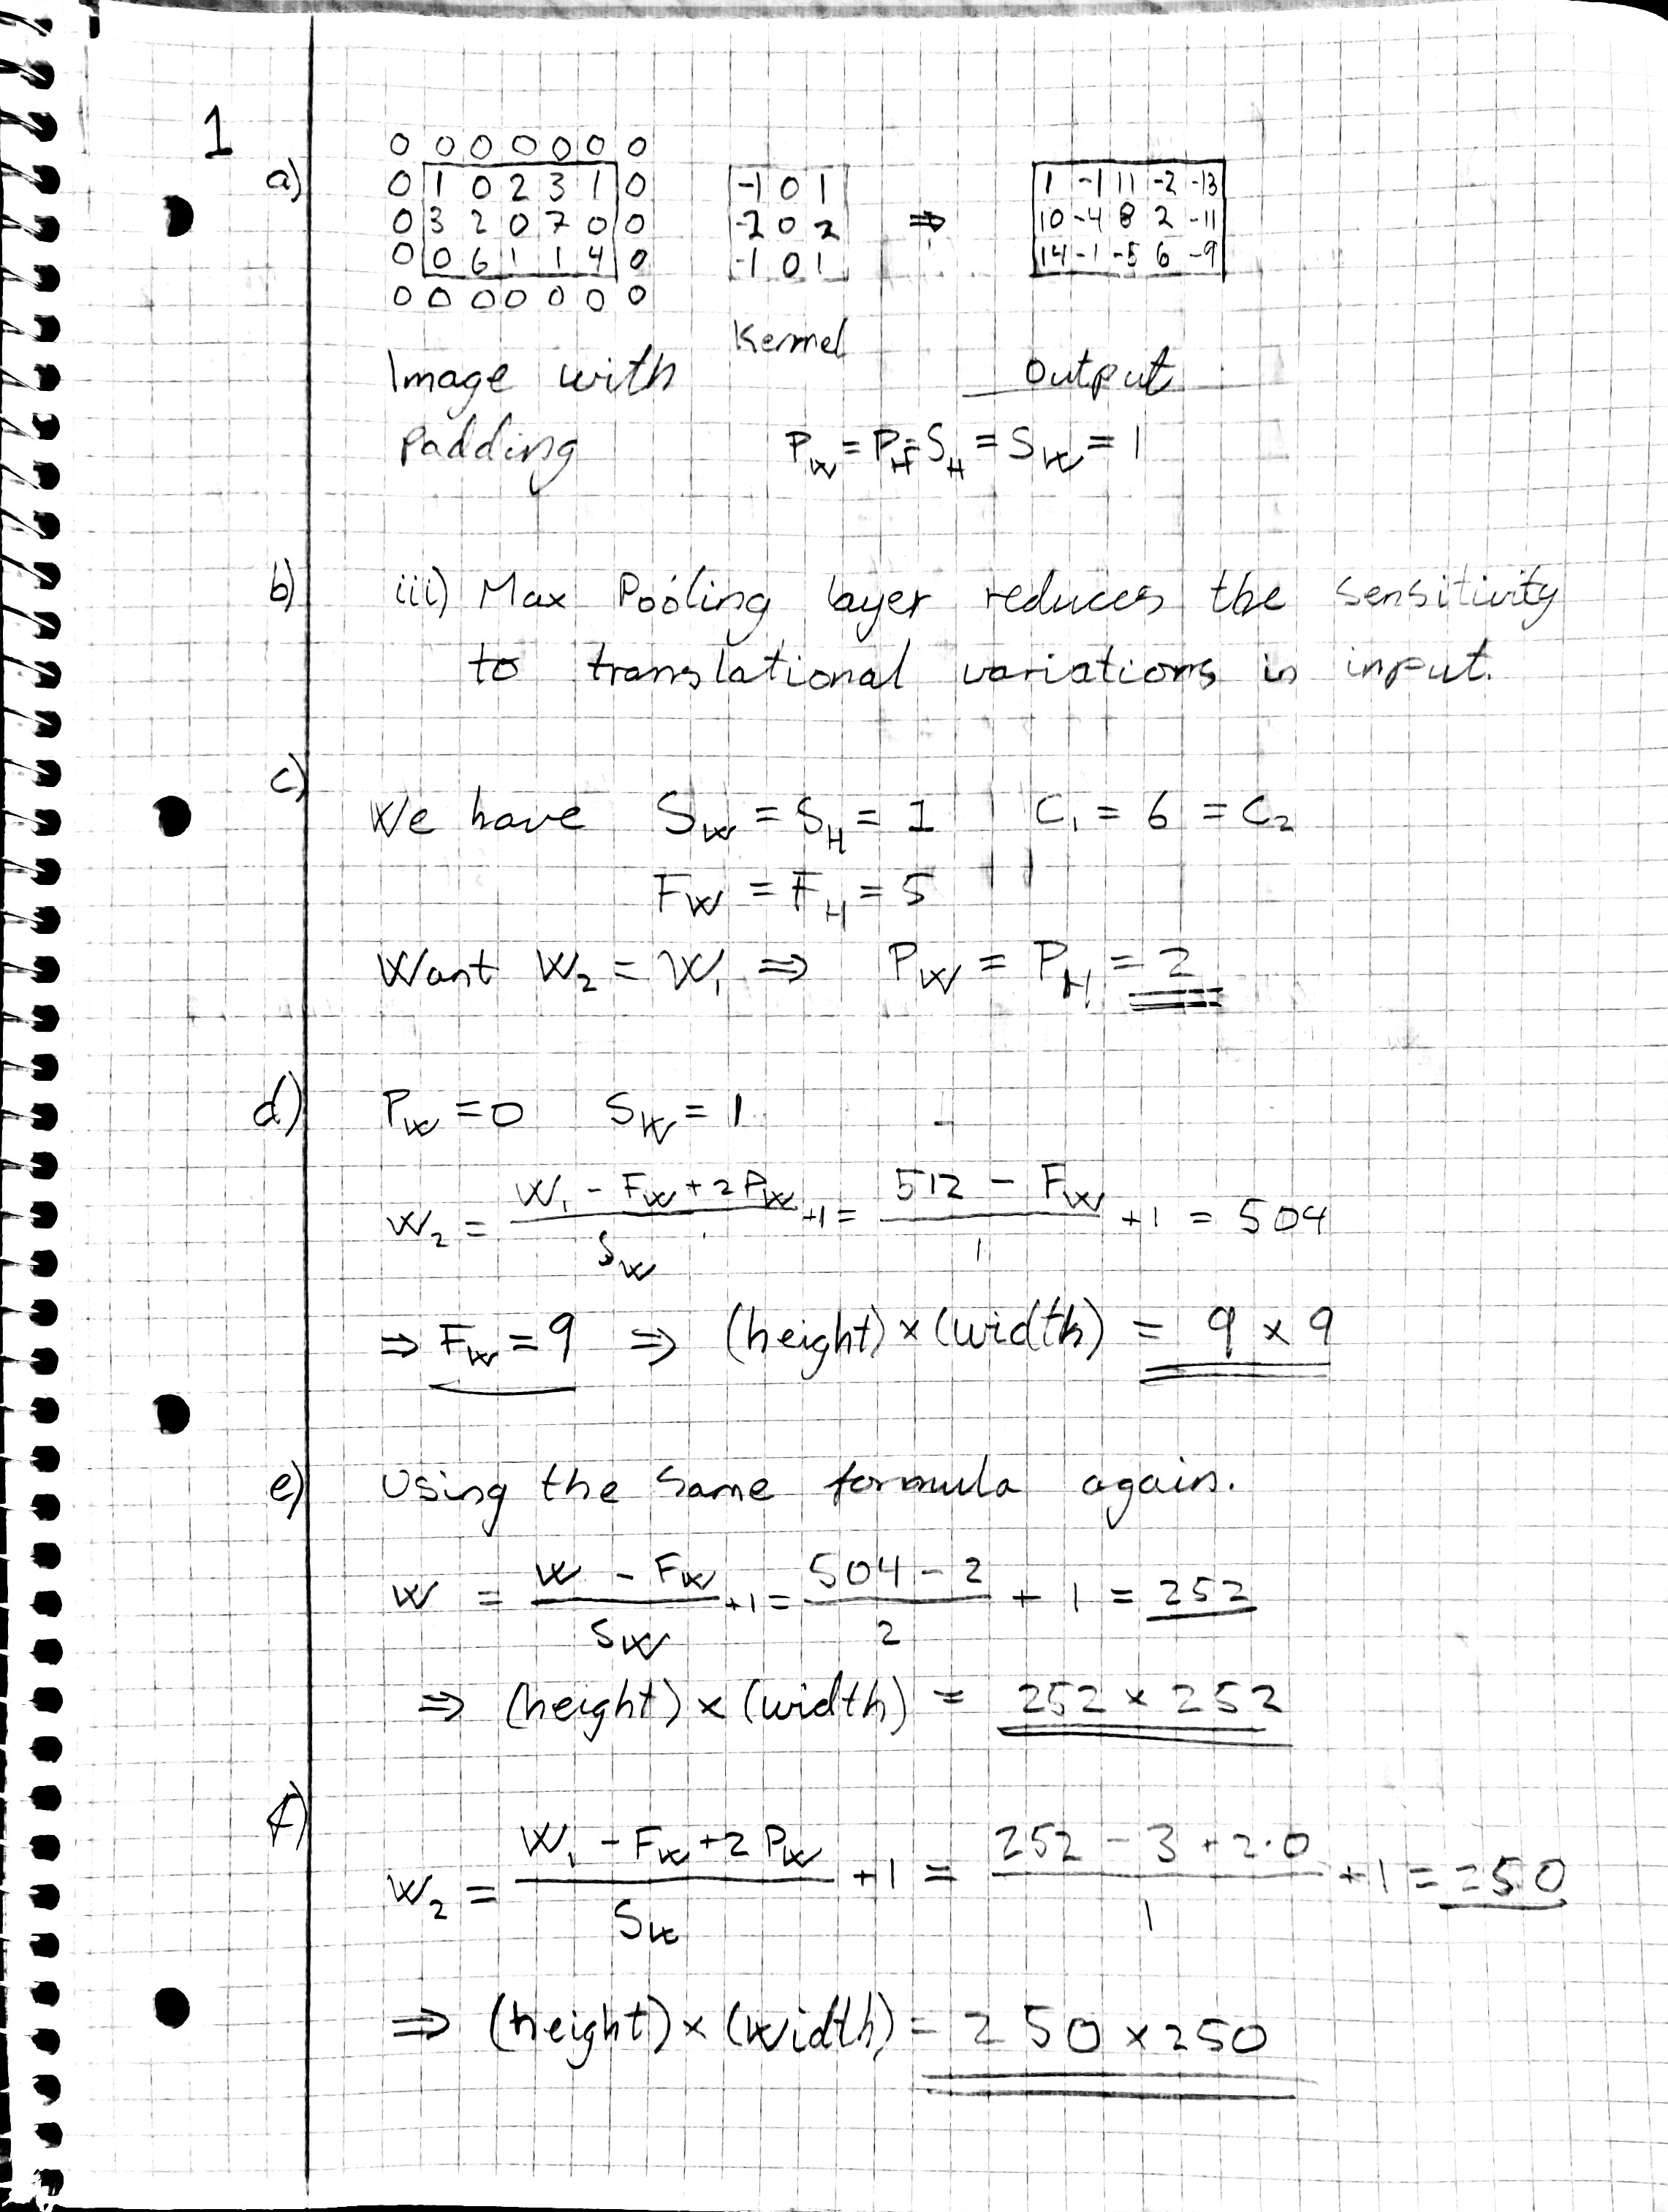 1
0 0 0 0 0 0 0
a) 0 1 0 2 3 1 0 -1 0 1 ⇒ 1 -1 11 -2 -13
0 3 2 0 7 0 0 -2 0 2 10 -4 8 2 -11
0 0 6 1 1 4 0 -1 0 1 14 -1 -5 6 -9
0 0 0 0 0 0 0
Image with Kernel Output
Padding P_W = P_H = S_H = S_W = 1
b) iii) Max Pooling layer reduces the sensitivity
to translational variations in input.
c)
We have S_W = S_H = 1 C_1 = 6 = C_2
F_W = F_H = 5
Want W_2 = W_1 ⇒ P_W = P_H = 2
d) P_W = 0 S_W = 1
W_2 = (W_1 - F_W + 2P_W)/S_W +1 = (512 - F_W)/1 +1 = 504
⇒ F_W = 9 ⇒ (height) × (width) = 9 × 9
e) Using the same formula again.
W = (W - F_W)/S_W +1 = (504 - 2)/2 + 1 = 252
⇒ (height) × (width) = 252 × 252
f)
W_2 = (W_1 - F_W + 2P_W)/S_W +1 = (252 - 3 + 2·0)/1 +1 = 250
⇒ (height) × (width) = 250 × 250